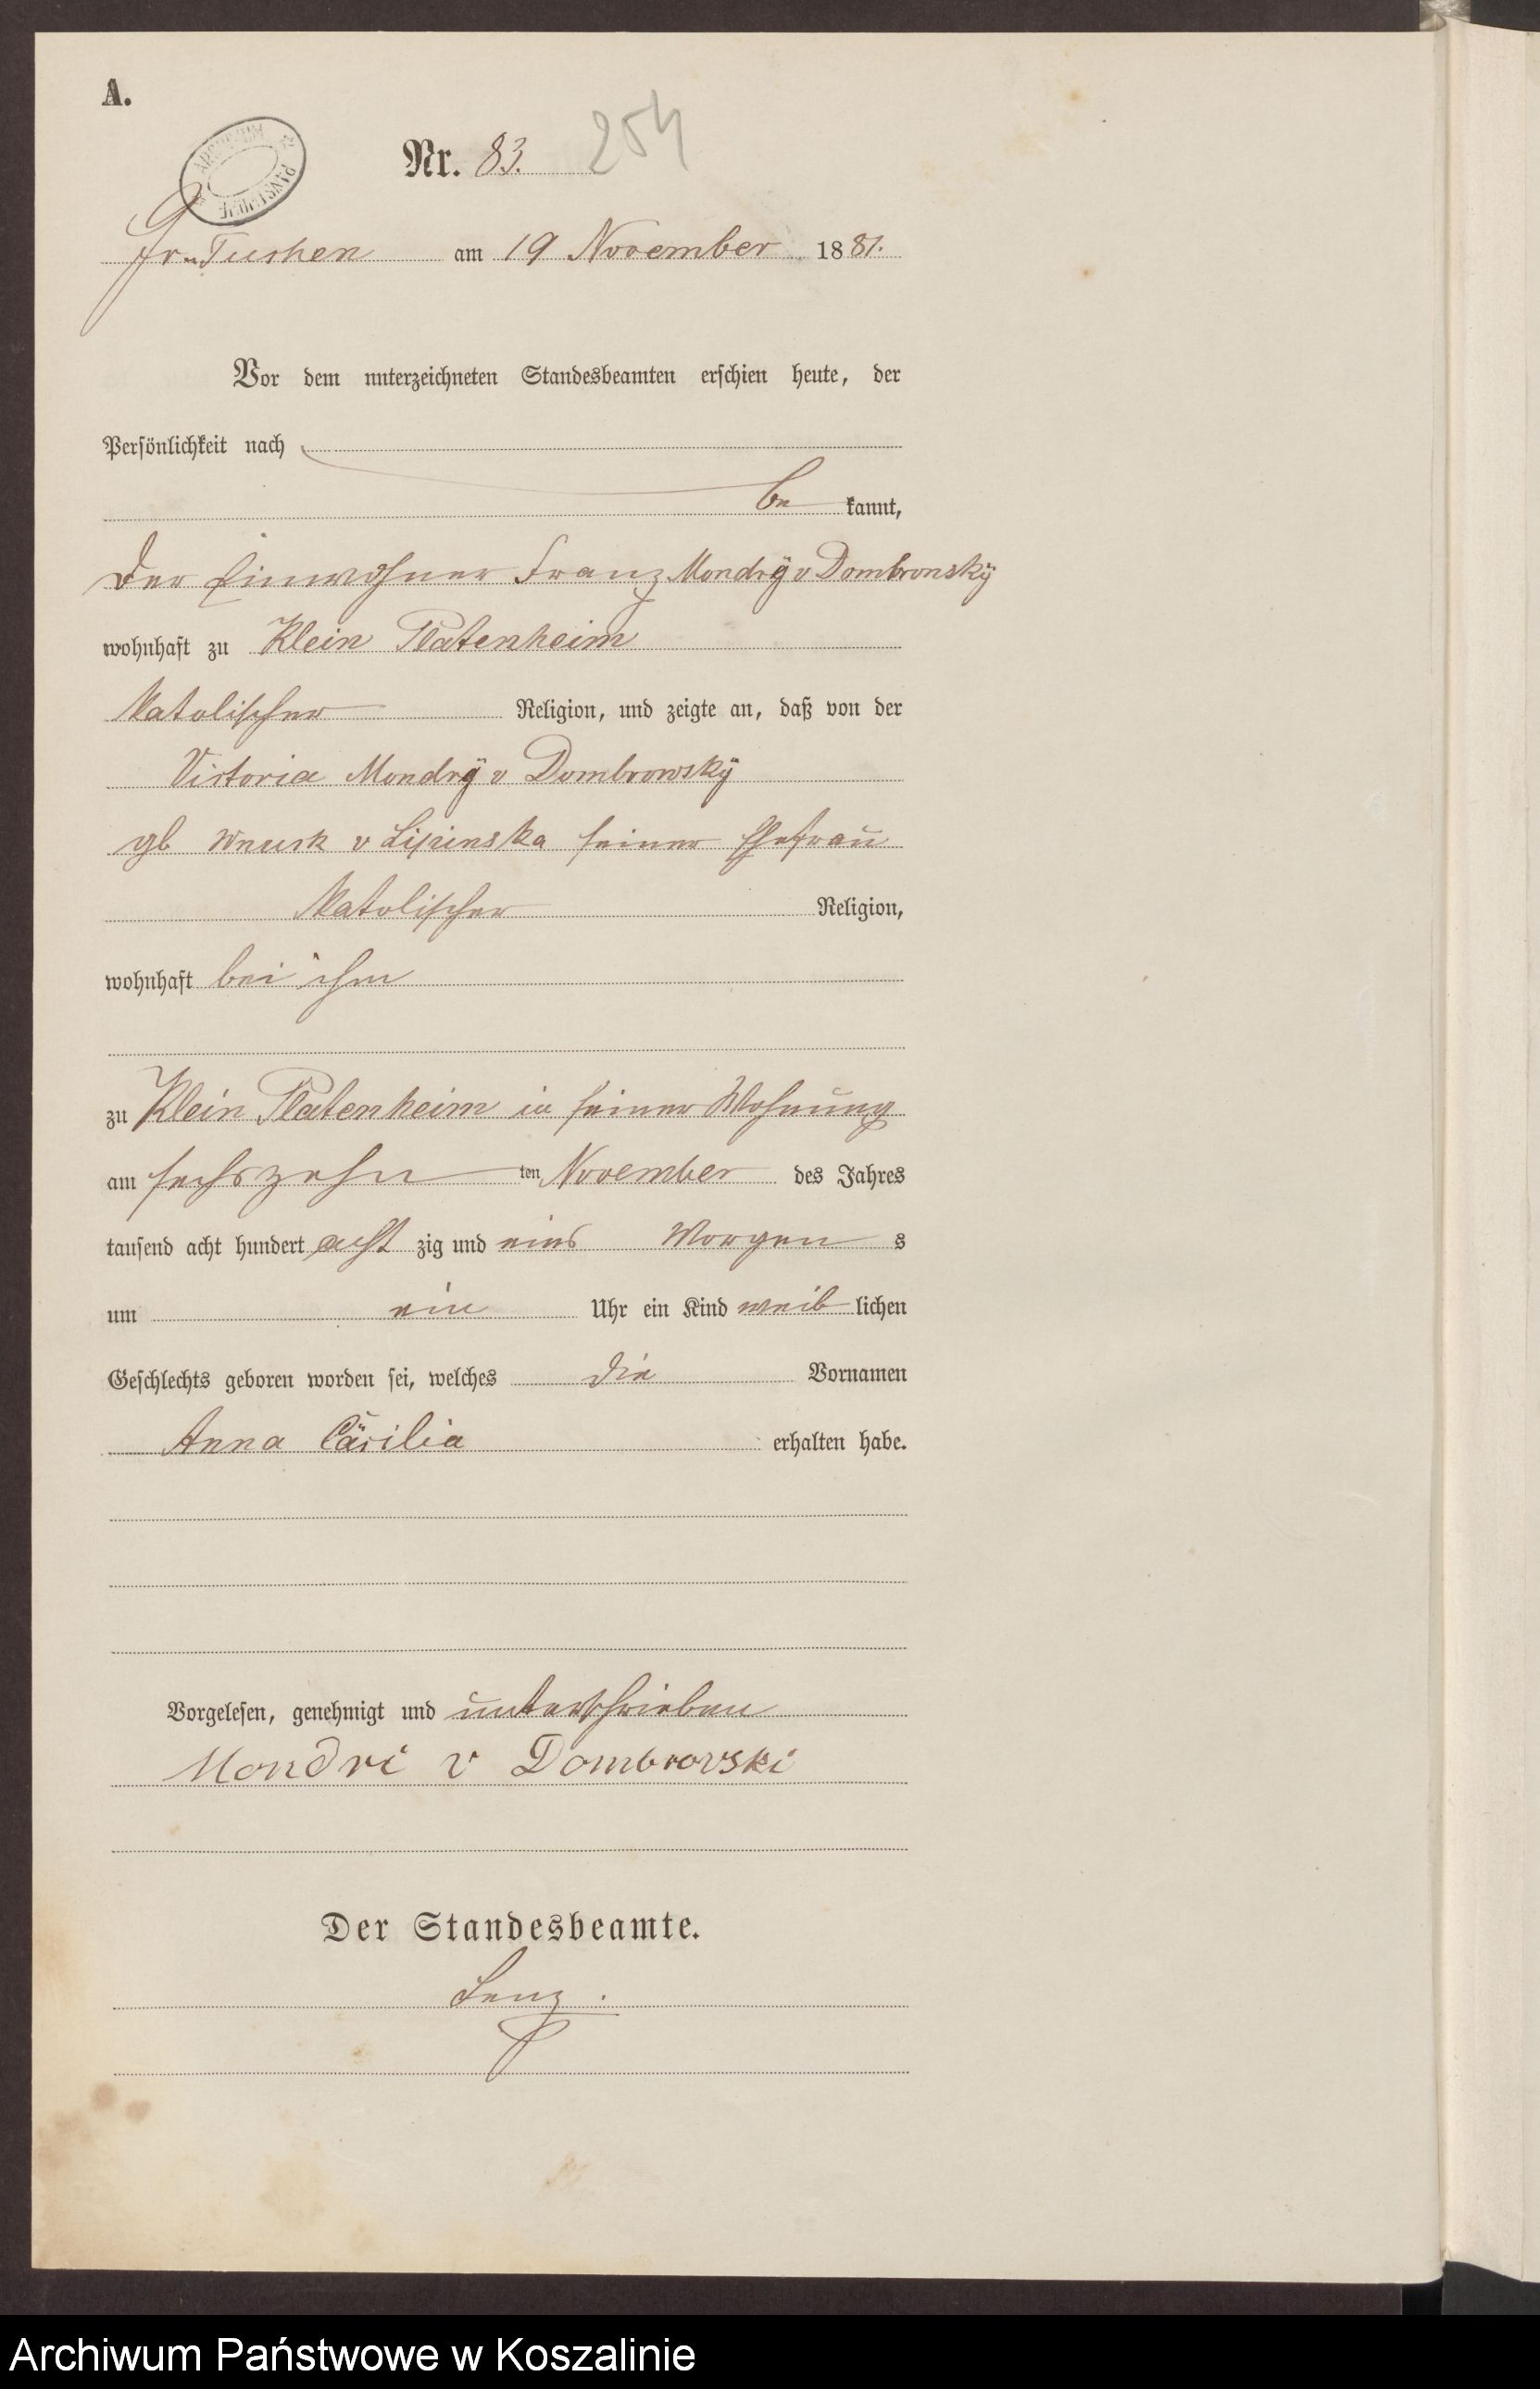 A.
Nr. 83. 254
ARCHIWUM PAŃSTWOWE
Gr. Tuchen am 19 November 1881.
Vor dem unterzeichneten Standesbeamten erschien heute, der
Persönlichkeit nach
be kannt,
Der Einwohner Franz Mondrÿ v Dombronskÿ
wohnhaft zu Klein Platenheim
Katolischer Religion, und zeigte an, daß von der
Victoria Mondrÿ v Dombrowskÿ
gb Wnuck v Lipinska seiner Ehefrau
Katolischer Religion,
wohnhaft bei ihm
zu Klein Platenheim in seiner Wohnung
am sechszehn ten November des Jahres
tausend acht hundert acht zig und eins Morgen s
um ein Uhr ein Kind weib lichen
Geschlechts geboren worden sei, welches die Vornamen
Anna Cäcilia erhalten habe.
Vorgelesen, genehmigt und unterschrieben
Mondri v Dombrovski
Der Standesbeamte.
Lenz.
Archiwum Państwowe w Koszalinie